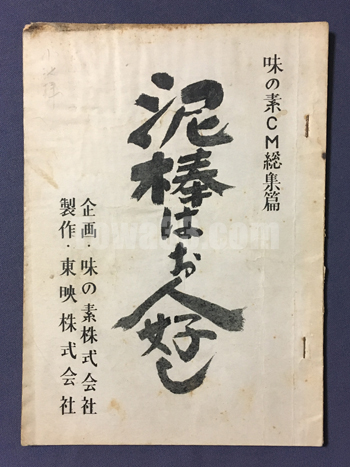 味の素CM総集篇
泥棒はお人好し
企画・味の素株式会社
製作・東映株式会社